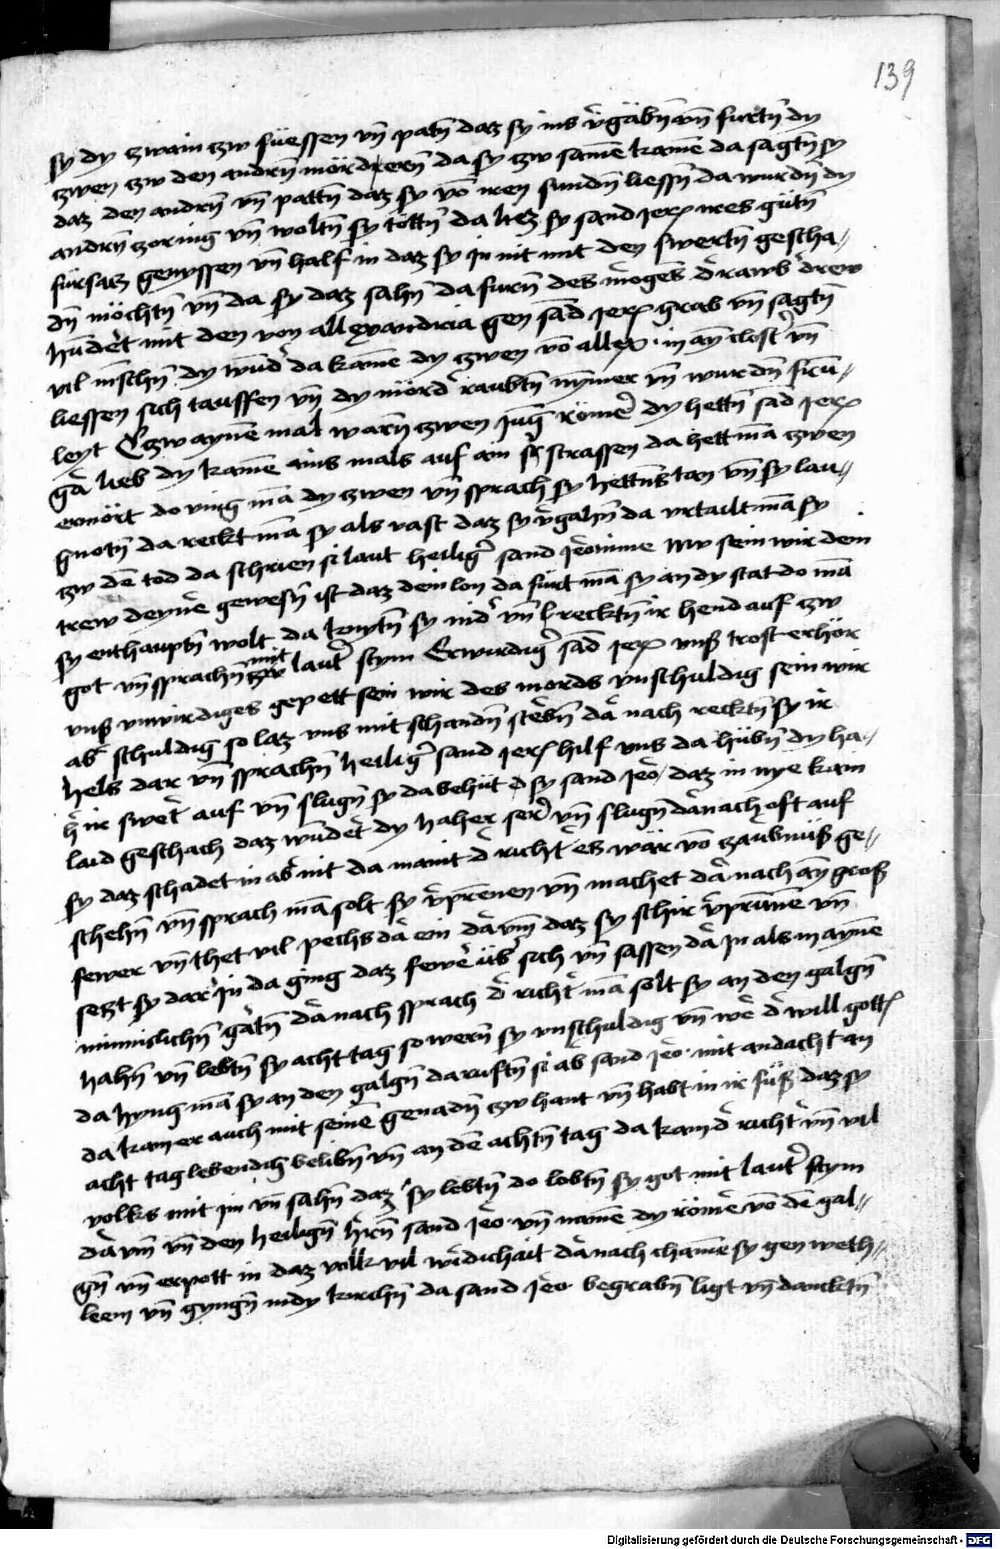 139
sy dy zwain zw füessen vn̄ patn̄ daz sy ins v͛gäbn̄ vn̄ furtn̄ dy
zwen zw den andrn̄ mördrern̄ da sy zw samē kamē da sagtn̄ sy
daz den andrn̄ vn̄ pattn̄ daz sy vō iren sundn̄ liessn̄ da wurdn̄ dy
andrn̄ zornig vn̄ woltn̄ sy töttn̄ da liez sy sand jer͛ ires gütn̄
fürsatz genyssen vn̄ half in daz sy in nit mit den swertn̄ gescha〃
dn̄ möchtn̄ vn̄ da sy daz sahn̄ da furn̄ des mōgēs d͛ rawb͛ drew
hūd͛t mit den von allexandria gen sād jer͛ grab vn̄ sagtn̄
vil mēschn̄ dy wūd͛ da kamē dy zwen vō allex. in ay̅ clost͛ vn̄
liessen sich tauffen vn̄ dy mörd͛ raubtn̄ nym̄er vn̄ wurdn̄ frū〃
leyt Czw aynē mal warn̄ zwen jūg römer͛ dy hettn̄ sād jer͛
gā lieb dy kamē ains mals auf am strassen da hett mā zwen
ermört do ving mā dy zwen vn̄ sprach sy hettn̄s tan vn̄ sy lau〃
gnotn̄ da reckt mā sy als vast daz sy v͛gahn̄ da vrtailt mā sy
zw dē tod da schrien si laut heilig͛ sand jeronime Nw sein wir dein
trew deyn͛ gewesn̄ ist daz dein lon da fürt mā sy an dy stat do mā
sy enthauptn̄ wolt da knytn̄ sy nid͛ vn̄ recktn̄ ir hend auf zw
got vn̄ sprachn̄ mit laut͛ stym Erwirdig͛ sād jer͛ vnß trost erhör
vnß vnwirdiges gepett sein wir des mords vnschuldig sein wir
ab͛ schuldig so laz vns mit schandn̄ st͛bn̄ dā nach recktn̄ sy ir
hels dar vn̄ sprachn̄ heilig͛ sand jer͛ hilf vns da hübn̄ dy ha〃
h͛ ir sw͛t auf vn̄ slugn̄ sy da behüt sy sand jero͛ daz in nye kain
laid geschach daz wūd͛t dy haher ser͛ vn̄ slugn̄ d͛nach oft auf
sy daz schadet in ab͛ nit da maint d͛ richt͛ es wär vō zaubnüß ge〃
schehn̄ vn̄ sprach mā solt sy v͛prēnen vn̄ machet dā nach ay̅ groß
fewer vn̄ thet vil pechs dā ein dā vm̄ daz sy schir v͛prūnē vn̄
setzt sy dar jn da ging daz few͛ üb͛ sich vn̄ sassen dā jn als in aynē
minnichlichn̄ gartn̄ dā nach sprach d͛ richt͛ mā solt sy an den galgn̄
hahn̄ vn̄ lebtn̄ sy acht tag so wern̄ sy vnschuldig vn̄ wē d͛ will gott͛
da hyng mā sy an den galgn̄ da ruftn̄ si ab͛ sand jero. mit andacht an
da kam er auch mit seinē genadn̄ zw hant vn̄ habt in ir füß daz sy
acht tag lebendig belibn̄ vn̄ an dē achtn̄ tag da kam d͛ richt͛ vn̄ vil
volks mit im vn̄ sahn̄ daz sy lebtn̄ do lobtn̄ sy got mit laut͛ stym
dā vm̄ vn̄ den heilign̄ h͛rn̄ sand jero. vn̄ namē dy röm͛ vō dē gal〃
gn̄ vn̄ erpott in daz volk vil wirdichait dā nach chamē sy gen weth〃
leem vn̄ gyngn̄ in dy kirchn̄ da sand jero. begrabn̄ ligt vn̄ dancktn̄
Digitalisierung gefördert durch die Deutsche Forschungsgemeinschaft - DFG